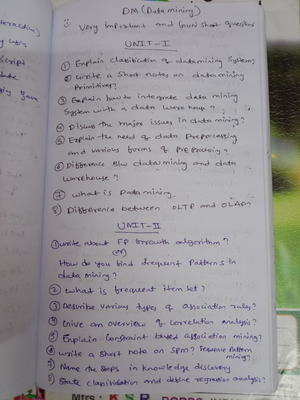 DM (Data mining)
Very important and (some) short question
UNIT-I
① Explain classification of datamining systems
② write a short notes on data mining
Primitives?
③ Explain how to integrate data mining
System with a data ware house?
④ Discuss the major issues in data mining?
⑤ Explain the need of data preprocessing
and various forms of preprocessing?
⑥ Difference b/w datamining and data
warehouse?
⑦ what is Data mining.
⑧ Difference between OLTP and OLAP?
UNIT-II
① write about FP Growth algorithm?
(or)
How do you find frequent patterns in
data mining?
② what is frequent item set?
③ Describe various types of association rules?
④ Give an overview of correlation analysis?
⑤ Explain constraint based association mining?
⑥ write a short note on SPM? Sequence pattern
mining?
⑦ Name the steps in knowledge discovery
⑧ State classification and define regression analysis?